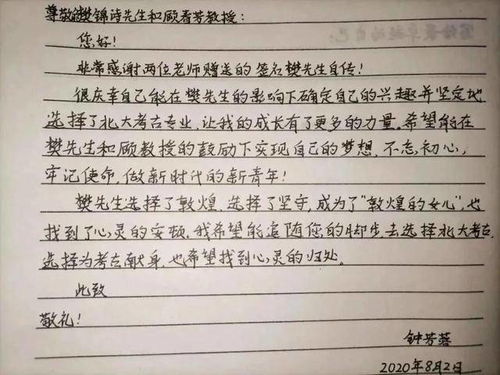 尊敬的樊锦诗先生和顾春芳教授:
您好!
非常感谢两位老师赠送的签名樊先生自传!
很庆幸自己能在樊先生的影响下确定自己的兴趣并坚定地
选择了北大考古专业,让我的成长有了更多的力量。希望能在
樊先生和顾教授的鼓励下实现自己的梦想,不忘初心,
牢记使命,做新时代的新青年!
樊先生选择了敦煌,选择了坚守,成为了“敦煌的女儿”,也
找到了心灵的安顿。我希望能追随您的脚步去选择北大考古,
选择为考古献身,也希望找到心灵的归处。
此致
敬礼!
钟芳蓉
2020年8月2日